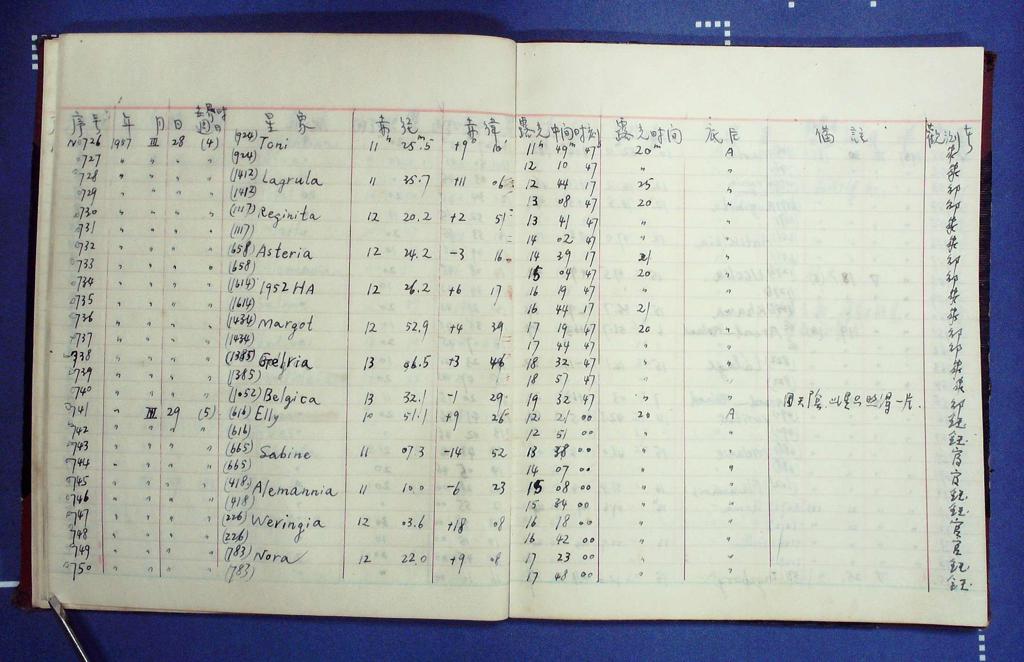 序号 年 月 日 世界时 週日 星象 赤经 赤纬 露光中间时刻 露光时间 底片 備註 觀測者
No 726 1957 III 28 (4) (924) Toni 11h 25.5m +9° 10' 11h 49m 47s 20m A
727 " " " " (924) 12 10 47 " "
728 " " " " (1412) Lagrula 11 35.7 +11 06 12 44 17 25 "
729 " " " " (1412) 13 08 47 20 "
730 " " " " (1117) Reginita 12 20.2 +2 51 13 41 47 " "
731 " " " " (1117) 14 02 47 " "
732 " " " " (658) Asteria 12 24.2 -3 16 14 39 17 21 "
733 " " " " (658) 15 04 47 20 "
734 " " " " (1614) 1952 HA 12 26.2 +6 17 16 19 47 " "
735 " " " " (1614) 16 44 17 21 "
736 " " " " (1434) Margot 12 52.9 +4 39 17 19 47 20 "
737 " " " " (1434) 17 44 47 " "
738 " " " " (1385) Gelria 13 06.5 +3 46 18 32 47 " "
739 " " " " (1385) 18 57 47 " "
740 " " " " (1052) Belgica 13 32.1 -1 29 19 32 47 " " 因天陰.此星只照得一片.
741 " III 29 (5) (616) Elly 10 51.1 +9 26 12 21 00 20 A
742 " " " " (616) 12 51 00 " "
743 " " " " (665) Sabine 11 07.3 -14 52 13 38 00 " "
744 " " " " (665) 14 07 00 " "
745 " " " " (418) Alemannia 11 10.0 -6 23 15 08 00 " "
746 " " " " (418) 15 34 00 " "
747 " " " " (226) Weringia 12 03.6 +18 08 16 18 00 " "
748 " " " " (226) 16 42 00 " "
749 " " " " (783) Nora 12 22.0 +9 08 17 23 00 " "
750 " " " " (783) 17 48 00 " "